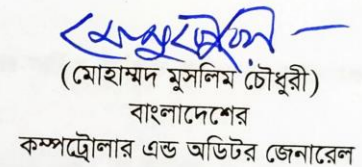 (মোহাম্মদ মুসলিম চৌধুরী)
বাংলাদেশের
কম্পট্রোলার এন্ড অডিটর জেনারেল